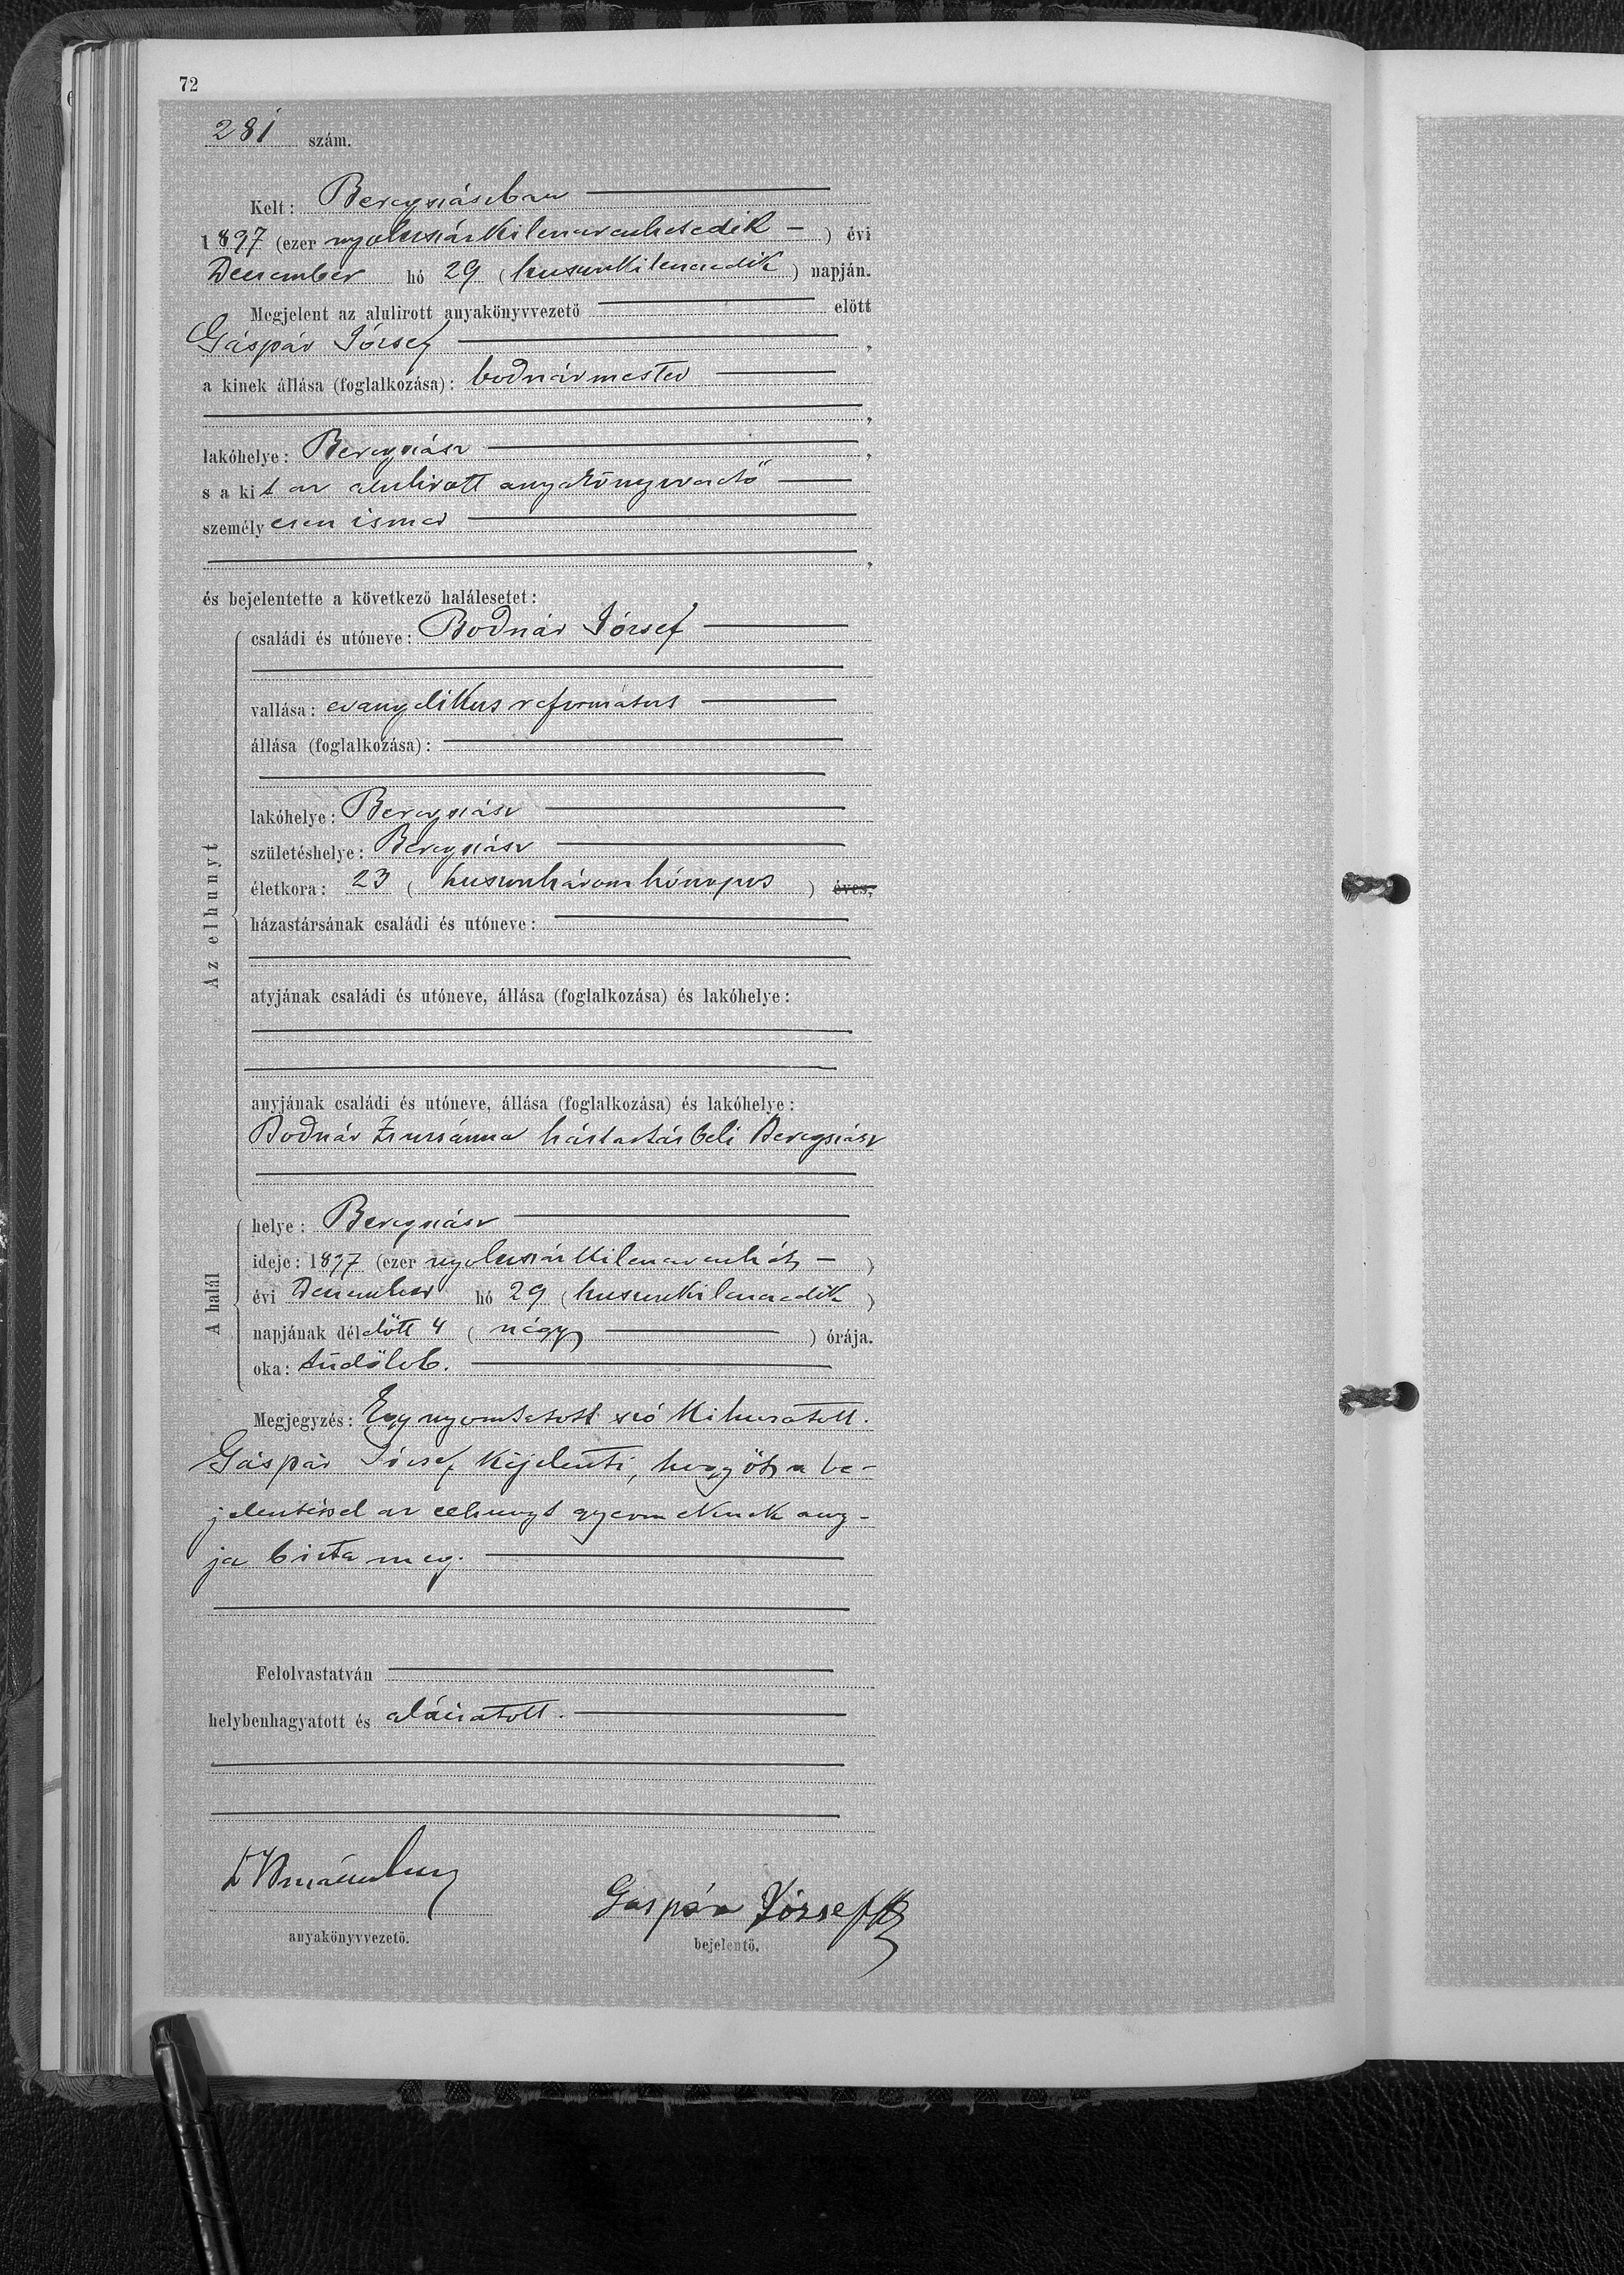 72
281 szám.
Kelt: Beregszászban
1897 (ezer nyolcszázkilencvenhetedik) évi
December hó 29 (huszonkilencedik) napján.
Megjelent az alulirott anyakönyvvezető előtt
Gáspár József,
a kinek állása (foglalkozása): bodnármester
,
lakóhelye: Beregszász,
s a kit az alulirott anyakönyvvezető
személyesen ismer
,
és bejelentette a következő halálesetet:
családi és utóneve: Bodnár József
vallása: evangelikus református
állása (foglalkozása):
lakóhelye: Beregszász
születéshelye: Beregszász
életkora: 23 (huszonhárom hónapos) éves,
házastársának családi és utóneve:
Az elhunyt
atyjának családi és utóneve, állása (foglalkozása) és lakóhelye:
anyjának családi és utóneve, állása (foglalkozása) és lakóhelye:
Bodnár Zsuzsánna háztartásbeli Beregszász
helye: Beregszász
ideje: 1897 (ezer nyolcszázkilencvenhét)
A halál
évi December hó 29 (huszonkilencedik)
napjának délelőtt 4 (négy) órája.
oka: tüdőlob.
Megjegyzés: Egy nyomtatott szó kihuzatott.
Gáspár József kijelenti, hogy őt a be-
jelentéssel az elhunyt gyermeknek any-
ja bizta meg.
Felolvastatván
helybenhagyatott és aláiratott.
Gáspár József
anyakönyvvezető.
bejelentő.